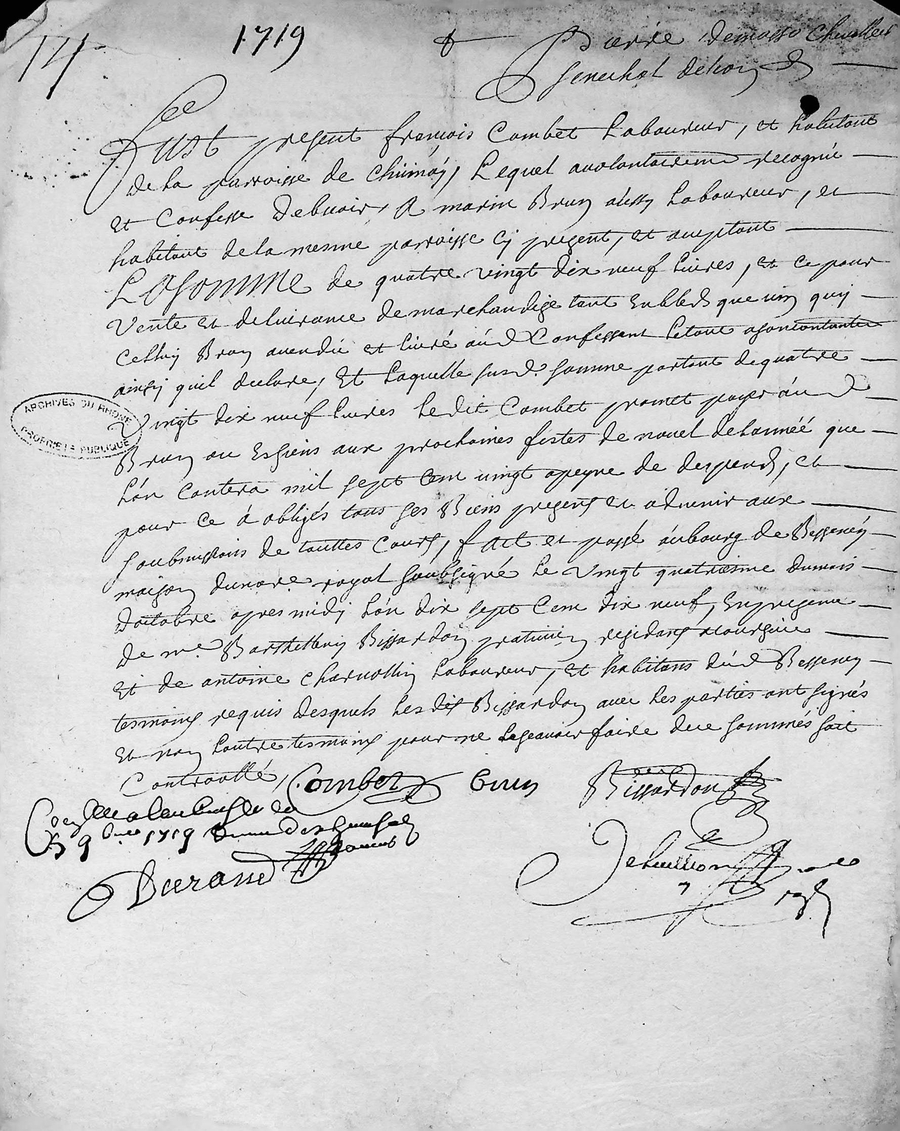 1719
Pierre demasso Chevallier
Senechal delion
Fust present françois Combet Laboureur, et habitant
de la parroisse de chiimÿ, Lequel avolontairemt recognũ
et Confesse debuoir, A marin Brun aussy Laboureur, et
habitant de la mesme parroisse cy present, et aceptant
La Somme de quatre vingt dix neuf livres, et ce pour
Vente et deliurance de marchandize tant En bled que vin quy
Celluy Brun a vendu et livré aud Combet Le tout a Contantantem
ainsy quil declare, Et Laquelle susd somme partant de quatre
vingt dix neuf livres Le dit Combet promet payer aud
Brun ou Es siens aux prochaines festes de nouel de Lannéé que
Lon Contera mil sept Cent vingt apeyne de despend, et
pour ce a obligés tous Ses Biens present et aduenir aux
Soubmissions de touttes Cours, fait et passé au bourg de Bessenéÿ
maison du nore royal soubsigné Le vingt quatriesme du mois
doctobre apres midy Lan dix sept Cent dix neuf, En presence
de me Barthellemy Bissardon praticien residant
Et de antoine Charvollin Laboureur, et habitans dud Bessenéy
tesmoins requis desquels Les dit Bissardon avec Les parties ont signés
Et non Lautre tesmoins pour ne Le scavoir faire de ce sommés soit
Controullé,
Combet
brun
Bissardon
1719
Durand
ARCHIVES DU RHONE
PROPRIÉTÉ PUBLIQUE